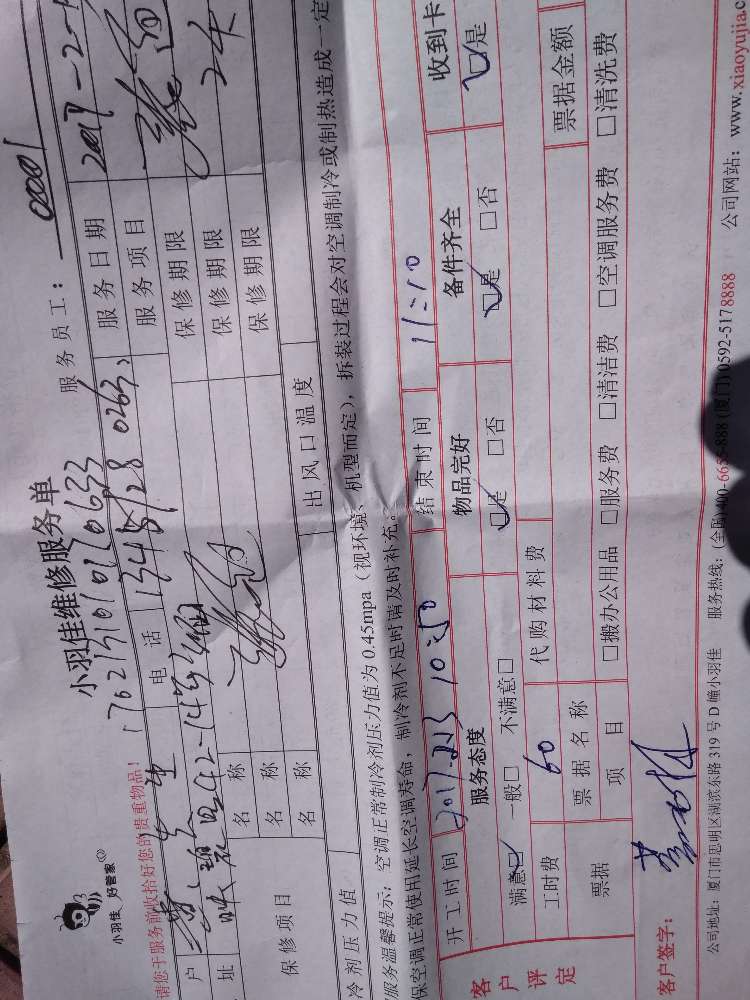 小羽佳 好管家
小羽佳维修服务单
服务员工：0001
请您于服务前收拾好您的贵重物品！
170213010150633
户 黄先生 电话 13451280263 服务日期 2017-2-1
址 服务项目
保修项目 名称 保修期限 2天
名称 保修期限
名称 保修期限
冷剂压力值 出风口温度
服务温馨提示：空调正常制冷剂压力值为0.45mpa（视环境、机型而定），拆装过程会对空调制冷或制热造成一定
保空调正常使用延长空调寿命，制冷剂不足时请及时补充。
开工时间 2017.2.13 10:50 结束时间 11:10
客户评定
服务态度 物品完好 备件齐全 收到卡
满意☑ 一般□ 不满意□ ☑是 □否 ☑是 □否 ☑是
工时费 60 代购材料费
票据 票据名称 票据金额
项目 □搬办公用品 □服务费 □清洁费 □空调服务费 □清洗费
客户签字：
公司地址：厦门市思明区湖滨东路319号D幢小羽佳 服务热线：(全国)400-6666-888 (厦门)0592-5178888 公司网站：www.xiaoyujia.c